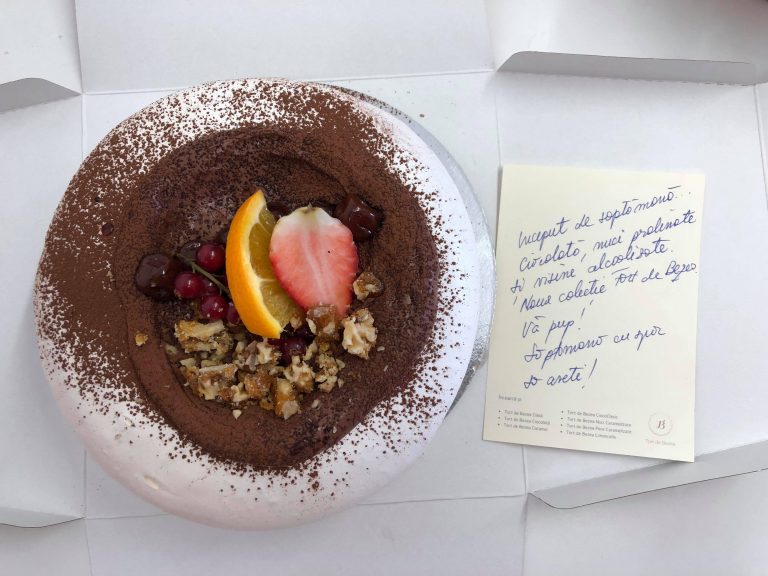 Început de săptămână...
Ciocolată, nuci pralinate
și visine alcoolizate.
Noua colecție Tort de Bezea
Vă pup!
Săptămână cu spor
să aveți!
Încearcă și:
• Tort de Bezea Clasic
• Tort de Bezea Ciocolată
• Tort de Bezea Caramel
• Tort de Bezea CocoOasis
• Tort de Bezea Nuci Caramelizate
• Tort de Bezea Pere Caramelizate
• Tort de Bezea Limoncello
B
Tort de Bezea